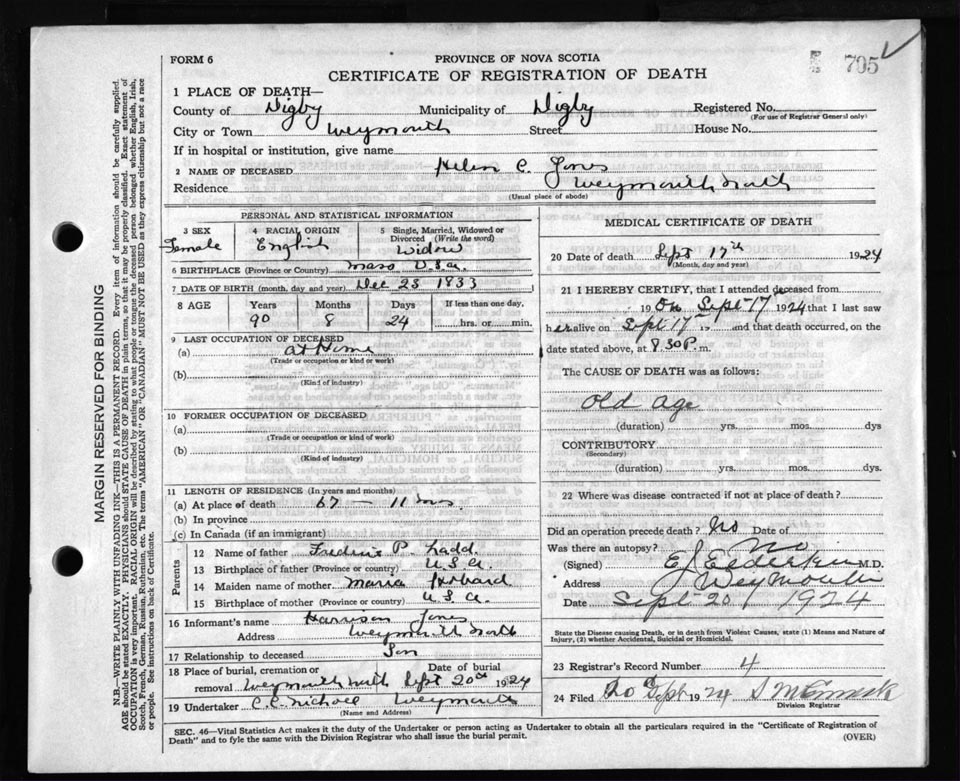 FORM 6
PROVINCE OF NOVA SCOTIA
705
CERTIFICATE OF REGISTRATION OF DEATH
1 PLACE OF DEATH—
County of Digby Municipality of Digby Registered No.
(For use of Registrar General only)
City or Town Weymouth Street House No.
If in hospital or institution, give name
2 NAME OF DECEASED Helen C. Jones
Residence Weymouth North
(Usual place of abode)
PERSONAL AND STATISTICAL INFORMATION
3 SEX Female
4 RACIAL ORIGIN English
5 Single, Married, Widowed or Divorced (Write the word) Widow
6 BIRTHPLACE (Province or Country) Mass U.S.A.
7 DATE OF BIRTH (month, day and year) Dec 23 1833
8 AGE Years Months Days If less than one day,
90 8 24 hrs. or min.
9 LAST OCCUPATION OF DECEASED
(a) at Home
(Trade or occupation or kind or work)
(b)
(Kind of industry)
10 FORMER OCCUPATION OF DECEASED
(a)
(Trade or occupation or kind of work)
(b)
(Kind of industry)
11 LENGTH OF RESIDENCE (In years and months)
(a) At place of death 67 — 11 mos
(b) In province
(c) In Canada (if an immigrant)
Parents
12 Name of father P. Ladd
13 Birthplace of father (Province or country) U.S.A.
14 Maiden name of mother Maria
15 Birthplace of mother (Province or country) U.S.A.
16 Informant's name Harrison Jones
Address Weymouth North
17 Relationship to deceased Son
18 Place of burial, cremation or removal Weymouth North Date of burial Sept 20th 1924
19 Undertaker C.C. Nichols Weymouth
(Name and Address)
MEDICAL CERTIFICATE OF DEATH
20 Date of death Sept 17th 1924
(Month, day and year)
21 I HEREBY CERTIFY, that I attended deceased from
19 On Sept 17 1924 that I last saw
her alive on Sept 17 19 and that death occurred, on the
date stated above, at 8.30 P. m.
The CAUSE OF DEATH was as follows:
Old Age
(duration) yrs. mos. dys
CONTRIBUTORY
(Secondary)
(duration) yrs. mos. dys.
22 Where was disease contracted if not at place of death?
Did an operation precede death? No Date of
Was there an autopsy? No
(Signed) E J Elderkin M.D.
Address Weymouth
Date Sept 20 1924
State the Disease causing Death, or in death from Violent Causes, state (1) Means and Nature of
Injury, (2) whether Accidental, Suicidal or Homicidal.
23 Registrar's Record Number 4
24 Filed 20 Sept 1924
Division Registrar
SEC. 46—Vital Statistics Act makes it the duty of the Undertaker or person acting as Undertaker to obtain all the particulars required in the "Certificate of Registration of
Death" and to fyle the same with the Division Registrar who shall issue the burial permit.
(OVER)
MARGIN RESERVED FOR BINDING
N.B.—WRITE PLAINLY WITH UNFADING INK—THIS IS A PERMANENT RECORD. Every item of information should be carefully supplied.
AGE should be stated EXACTLY. PHYSICIANS should STATE CAUSE OF DEATH in plain terms, so that it may be properly classified. Exact statement of
OCCUPATION is very important. RACIAL ORIGIN will be described by stating to what people or tongue the deceased person belonged whether English, Irish,
Scotch, French, German, Russian, Ruthenian, etc. The terms "AMERICAN" or "CANADIAN" MUST NOT BE USED as they express citizenship but not a race
or people. See instructions on back of Certificate.